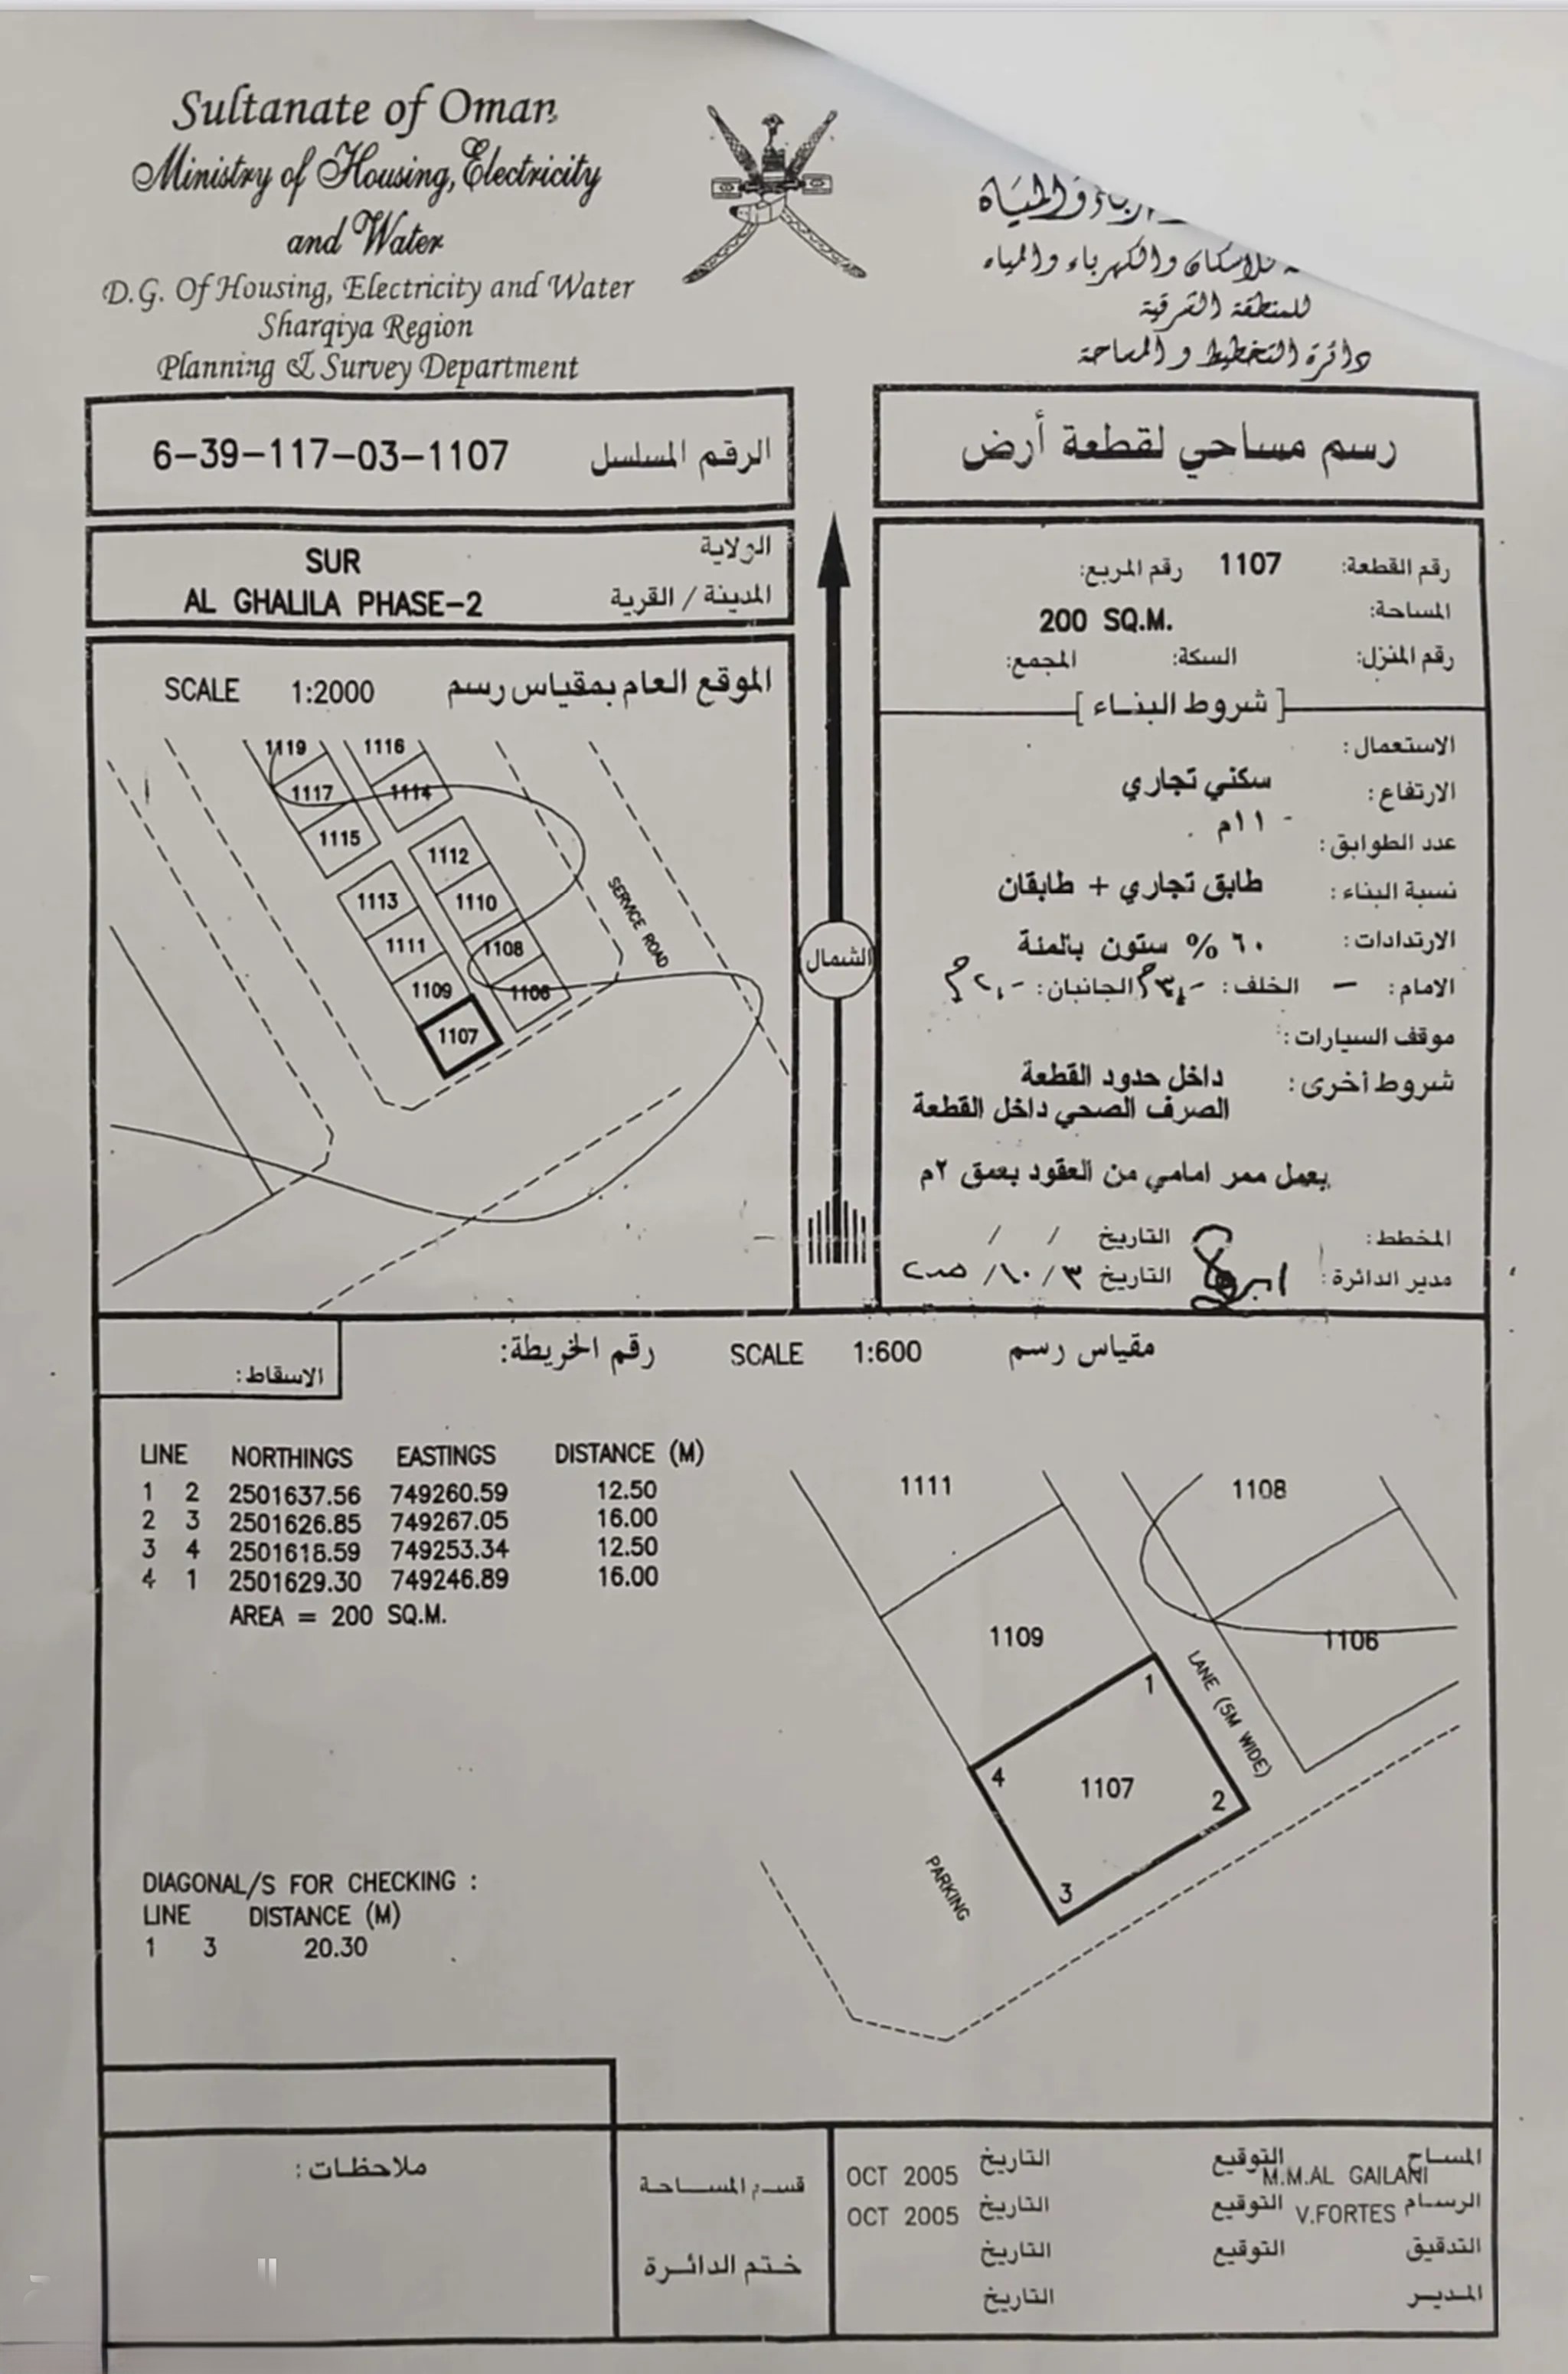 Sultanate of Oman
Ministry of Housing, Electricity
and Water
D.G. Of Housing, Electricity and Water
Sharqiya Region
Planning & Survey Department
والمياه
للاسكان والكهرباء والمياه
للمنطقة الشرقية
دائرة التخطيط و المساحة
رسم مساحي لقطعة أرض
6-39-117-03-1107 الرقم المسلسل
الولاية SUR
المدينة / القرية AL GHALILA PHASE-2
رقم القطعة: 1107 رقم المربع:
المساحة: 200 SQ.M.
رقم المنزل: السكة: المجمع:
[ شروط البناء ]
الاستعمال: سكني تجاري
الارتفاع: ١١م
عدد الطوابق: طابق تجاري + طابقان
نسبة البناء: ٦٠ % ستون بالمئة
الارتدادات:
الامام: – الخلف: الجانبان:
موقف السيارات: داخل حدود القطعة
شروط أخرى: الصرف الصحي داخل القطعة
يعمل ممر امامي من العقود بعمق ٢م
المخطط: التاريخ / /
مدير الدائرة: التاريخ ٣ /١٠/
الشمال
SCALE 1:2000 الموقع العام بمقياس رسم
1119
1116
1117
1114
1115
1112
1113
1110
1111
1108
1109
1106
1107
SERVICE ROAD
الاسقاط:
رقم الخريطة:
SCALE 1:600 مقياس رسم
LINE NORTHINGS EASTINGS DISTANCE (M)
1 2 2501637.56 749260.59 12.50
2 3 2501626.85 749267.05 16.00
3 4 2501618.59 749253.34 12.50
4 1 2501629.30 749246.89 16.00
AREA = 200 SQ.M.
1111
1108
1109
1106
1
LANE (5M WIDE)
4
1107
2
3
PARKING
DIAGONAL/S FOR CHECKING :
LINE DISTANCE (M)
1 3 20.30
ملاحظات:
قسم المساحة
ختم الدائرة
المساح M.M.AL GAILANI التوقيع التاريخ OCT 2005
الرسام V.FORTES التوقيع التاريخ OCT 2005
التدقيق التوقيع التاريخ
المدير التاريخ